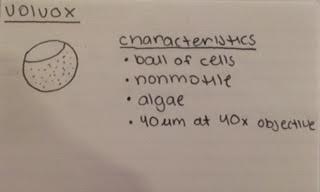 volvox
characteristics
• ball of cells
• nonmotile
• algae
• 40um at 40x objective